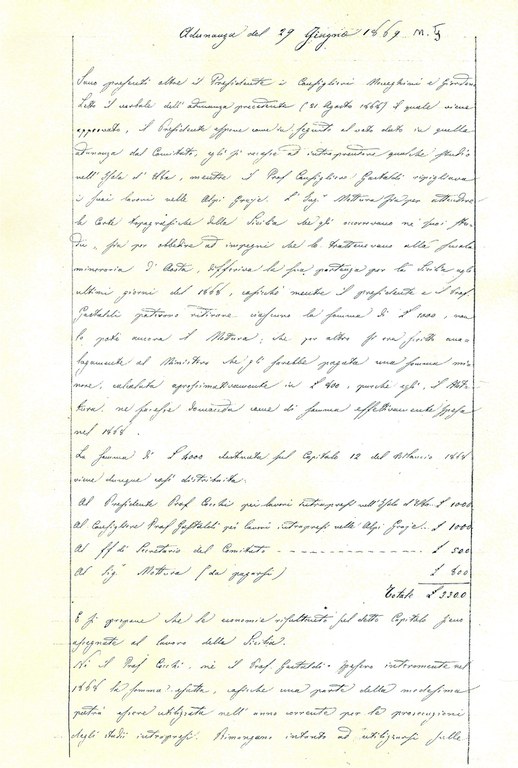 Adunanza del 29 Giugno 1869
Sono presenti oltre il Presidente i Consiglieri Meneghini e
Letto il verbale dell'adunanza precedente (21 Agosto 1868) il quale viene
approvato, il Presidente espone come in seguito al voto dato in quella
adunanza dal Comitato, egli si recasse ad intraprendere qualche studio
nell'Isola d'Elba, mentre il Prof Consigliere Gastaldi ripigliava
i suoi lavori nelle Alpi Graje. L'Ing.e Mottura sia per attendere
le Carte topografiche della Sicilia che gli occorrevano ne' suoi stu-
dii, sia per obbedire ad impegni che lo trattenevano alla Scuola
mineraria d'Aosta, differiva la sua partenza per la Sicilia agli
ultimi giorni del 1868, cosichè mentre il presidente e il Prof.
Gastaldi poterono ritirare ciascuno la somma di £ 1000, non
lo potè ancora il Mottura; che per altro si era scritto ana-
logamente al Ministero che gli sarebbe pagata una somma mi-
nore, calcolata aprossimativamente in £ 800, purchè egli, il Mot-
tura, ne facesse domanda come di somma effettivamente spesa
nel 1868.
La somma di £ 4000 destinata sul Capitolo 12 del Bilancio 1868
viene dunque così distribuita.
Al Presidente Prof Cocchi pei lavori intrapresi nell'Isola d'Elba £ 1000
Al Consigliere Prof Gastaldi pei lavori intrapresi nelle Alpi Graje.. £ 1000
Al ff di Secretario del Comitato - - - - £ 500
Al Sig.r Mottura (da pagarsi) £ 800
Totale £ 3300
E si propone che le economie risultanti sul detto Capitolo siano
assegnate al lavoro della Sicilia.
Nè il Prof Cocchi, nè il Prof Gastaldi spesero interamente nel
1868 la somma esatta, cosichè una parte della medesima
potrà essere utilizzata nell'anno corrente per la prosecuzione
degli studii intrapresi. Rimangono intanto ad utilizzarsi sulle